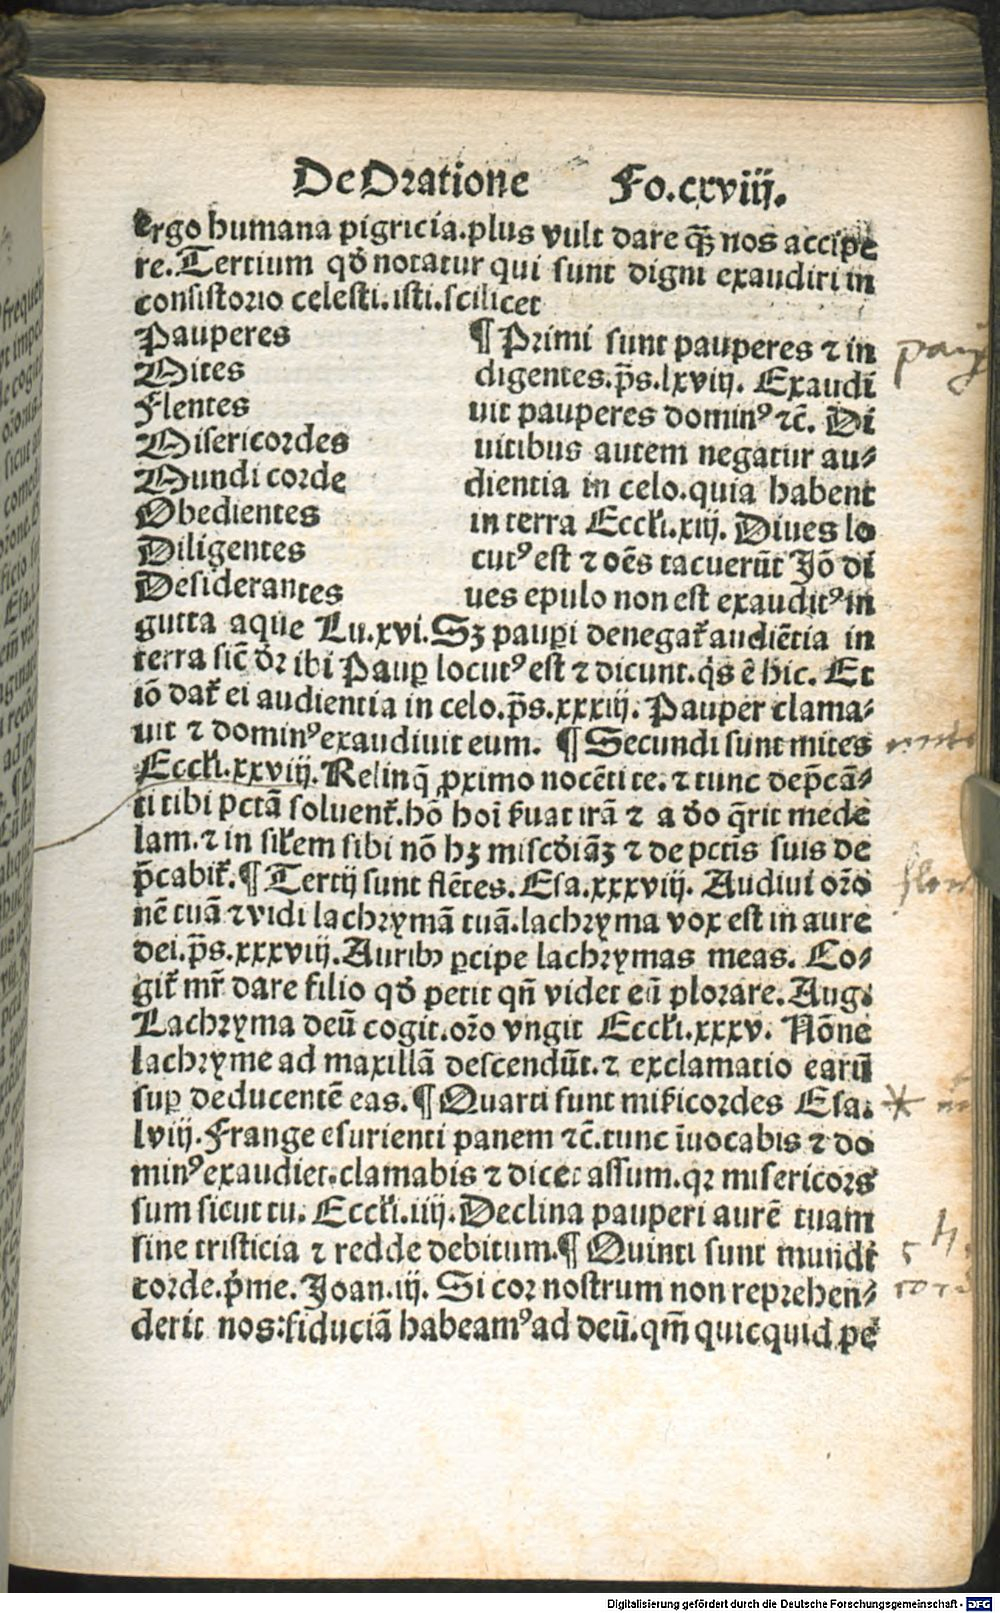 De Oratione Fo.cxviij.
ergo humana pigricia.plus vult dare q̄ʒ nos accipe
re.Tertium qd̄ notatur qui sunt digni exaudiri in
consistorio celesti.isti.scilicet
Pauperes
Mites
Flentes
Misericordes
Mundi corde
Obedientes
Diligentes
Desiderantes
¶ Primi sunt pauperes ⁊ in
digentes.p̄s.lxviij. Exaudi
uit pauperes dominꝰ ⁊c̄. Di
uitibus autem negatur au⸗
dientia in celo.quia habent
in terra Eccłi.xiij. Diues lo
cutꝰ est ⁊ oēs tacuerūt Jō di
ues epulo non est exauditꝰ in
gutta aque Lu.xvi.Sʒ paupi denegat᷑ audiētia in
terra sic̄ dr̄ ibi Paup locutꝰ est ⁊ dicunt.q̇s ē hic. Et
iō dat᷑ ei audientia in celo.p̄s.xxxiij. Pauper clama⸗
uit ⁊ dominꝰ exaudiuit eum. ¶ Secundi sunt mites
Eccłi.xxviij.Relinq̄ ꝓximo nocēti te.⁊ tunc dep̄cā⸗
ti tibi pctā soluent᷑.hō hoī ẜuat irā ⁊ a dō q̄rit mede
lam.⁊ in siłem sibi nō hʒ misc̄diāʒ ⁊ de pctīs suis de
p̄cabit᷑.¶ Tertij sunt flētes. Esa.xxxviij. Audiui or̄o
nē tuā ⁊ vidi lachrymā tuā.lachryma vox est in aure
dei.p̄s.xxxviij.Auribꝫ ꝑcipe lachrymas meas. Co⸗
git᷑ mr̄ dare filio qd̄ petit qn̄ videt eū plorare.Aug.
Lachryma deū cogit.or̄o vngit Eccłi.xxxv. Nōne
lachryme ad maxillā descendūt.⁊ exclamatio earū
suꝑ deducentē eas.¶ Quarti sunt miẜicordes Esa.
lviij.Frange esurienti panem ⁊c̄.tunc īuocabis ⁊ do
minꝰ exaudiet.clamabis ⁊ dicet assum.qꝛ misericors
sum sicut tu. Eccłi.iiij.Declina pauperi aurē tuam
sine tristicia ⁊ redde debitum.¶ Quinti sunt mundi
corde.p̄me. Joan.iij. Si cor nostrum non reprehen⸗
derit nos:fiduciā habeamꝰ ad deū.qm̄ quicquid pe
Digitalisierung gefördert durch die Deutsche Forschungsgemeinschaft - DFG